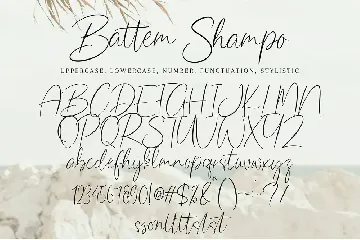 Battem Shampo
UPPERCASE, LOWERCASE, NUMBER, PUNCTUATION, STYLISTIC
ABCDEFGHIJKLMN
OPQRSTUVWXYZ
abcdefghijklmnopqrstuvwxyz
1234567890!@#$%&*()-+?/